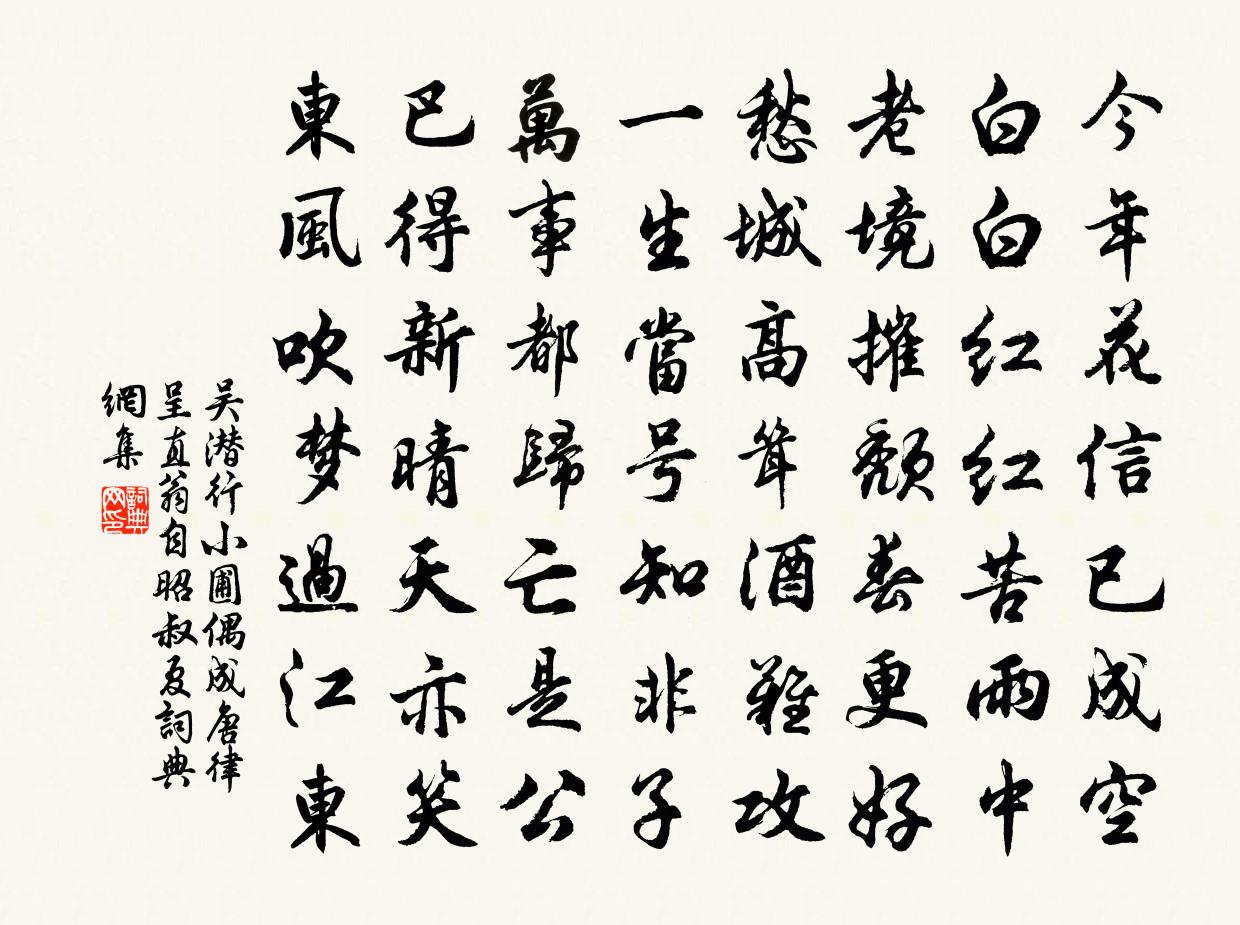 今年花信已成空
白白红红苦雨中
老境摧颓春更好
愁城高耸酒难攻
一生當号知非子
萬事都歸亡是公
已得新晴天亦笑
東風吹梦過江東
吴潜行小圃偶成唐律
呈直翁自昭叔夏詞典
網集
詞典网印